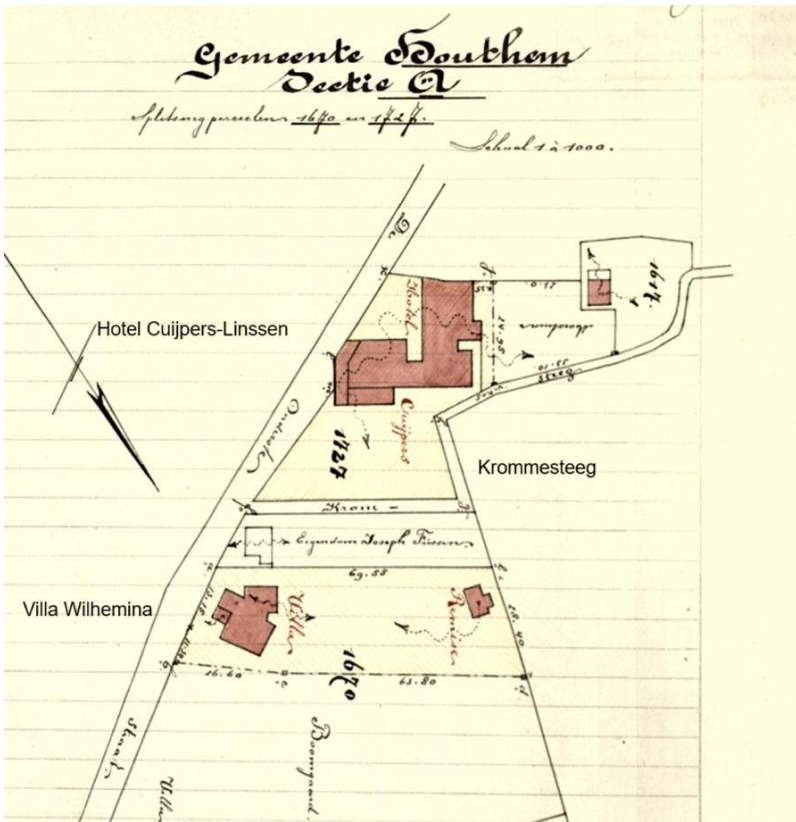 Gemeente Houthem
Sectie A
Splitsing perceelen 1670 en 1727.
Schaal 1 à 1000.
De
Hotel
1617.
Hotel Cuijpers-Linssen
Onderste
Cuijpers
1727
Krommesteeg
Krom -
Eigendom Joseph
69.55
Villa Wilhemina
Villa
Remise
1670
16.60
63.80
Straat
Boomgaard.
Villa